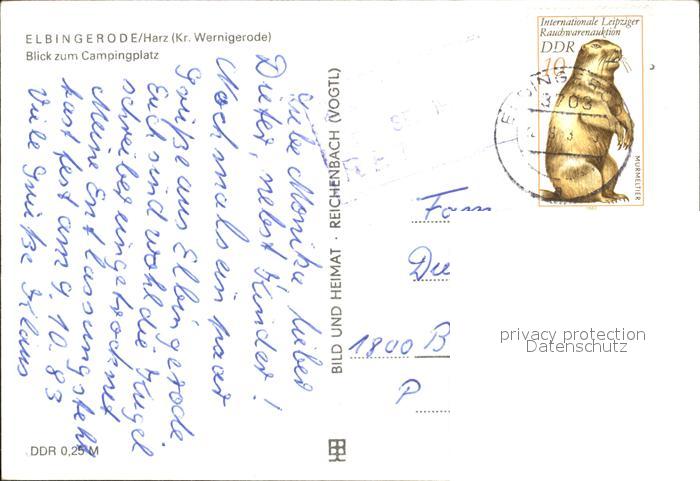 ELBINGERODE/Harz (Kr. Wernigerode)
Blick zum Campingplatz
Liebe Monika, lieber
Dieter, nebst Kinder!
Nochmals ein paar
Grüße aus Elbingerode
Euch sind wohl die Kugel
schreiber eingetrocknet
Meine Entlassung steht
fast fest am 9.10.83
Viele Grüße Klaus
DDR 0,25 M
BILD UND HEIMAT · REICHENBACH (VOGTL)
Internationale Leipziger
Rauchwarenauktion
DDR
10
MURMELTIER
3703
Fam
Die
1800 B
P
privacy protection
Datenschutz